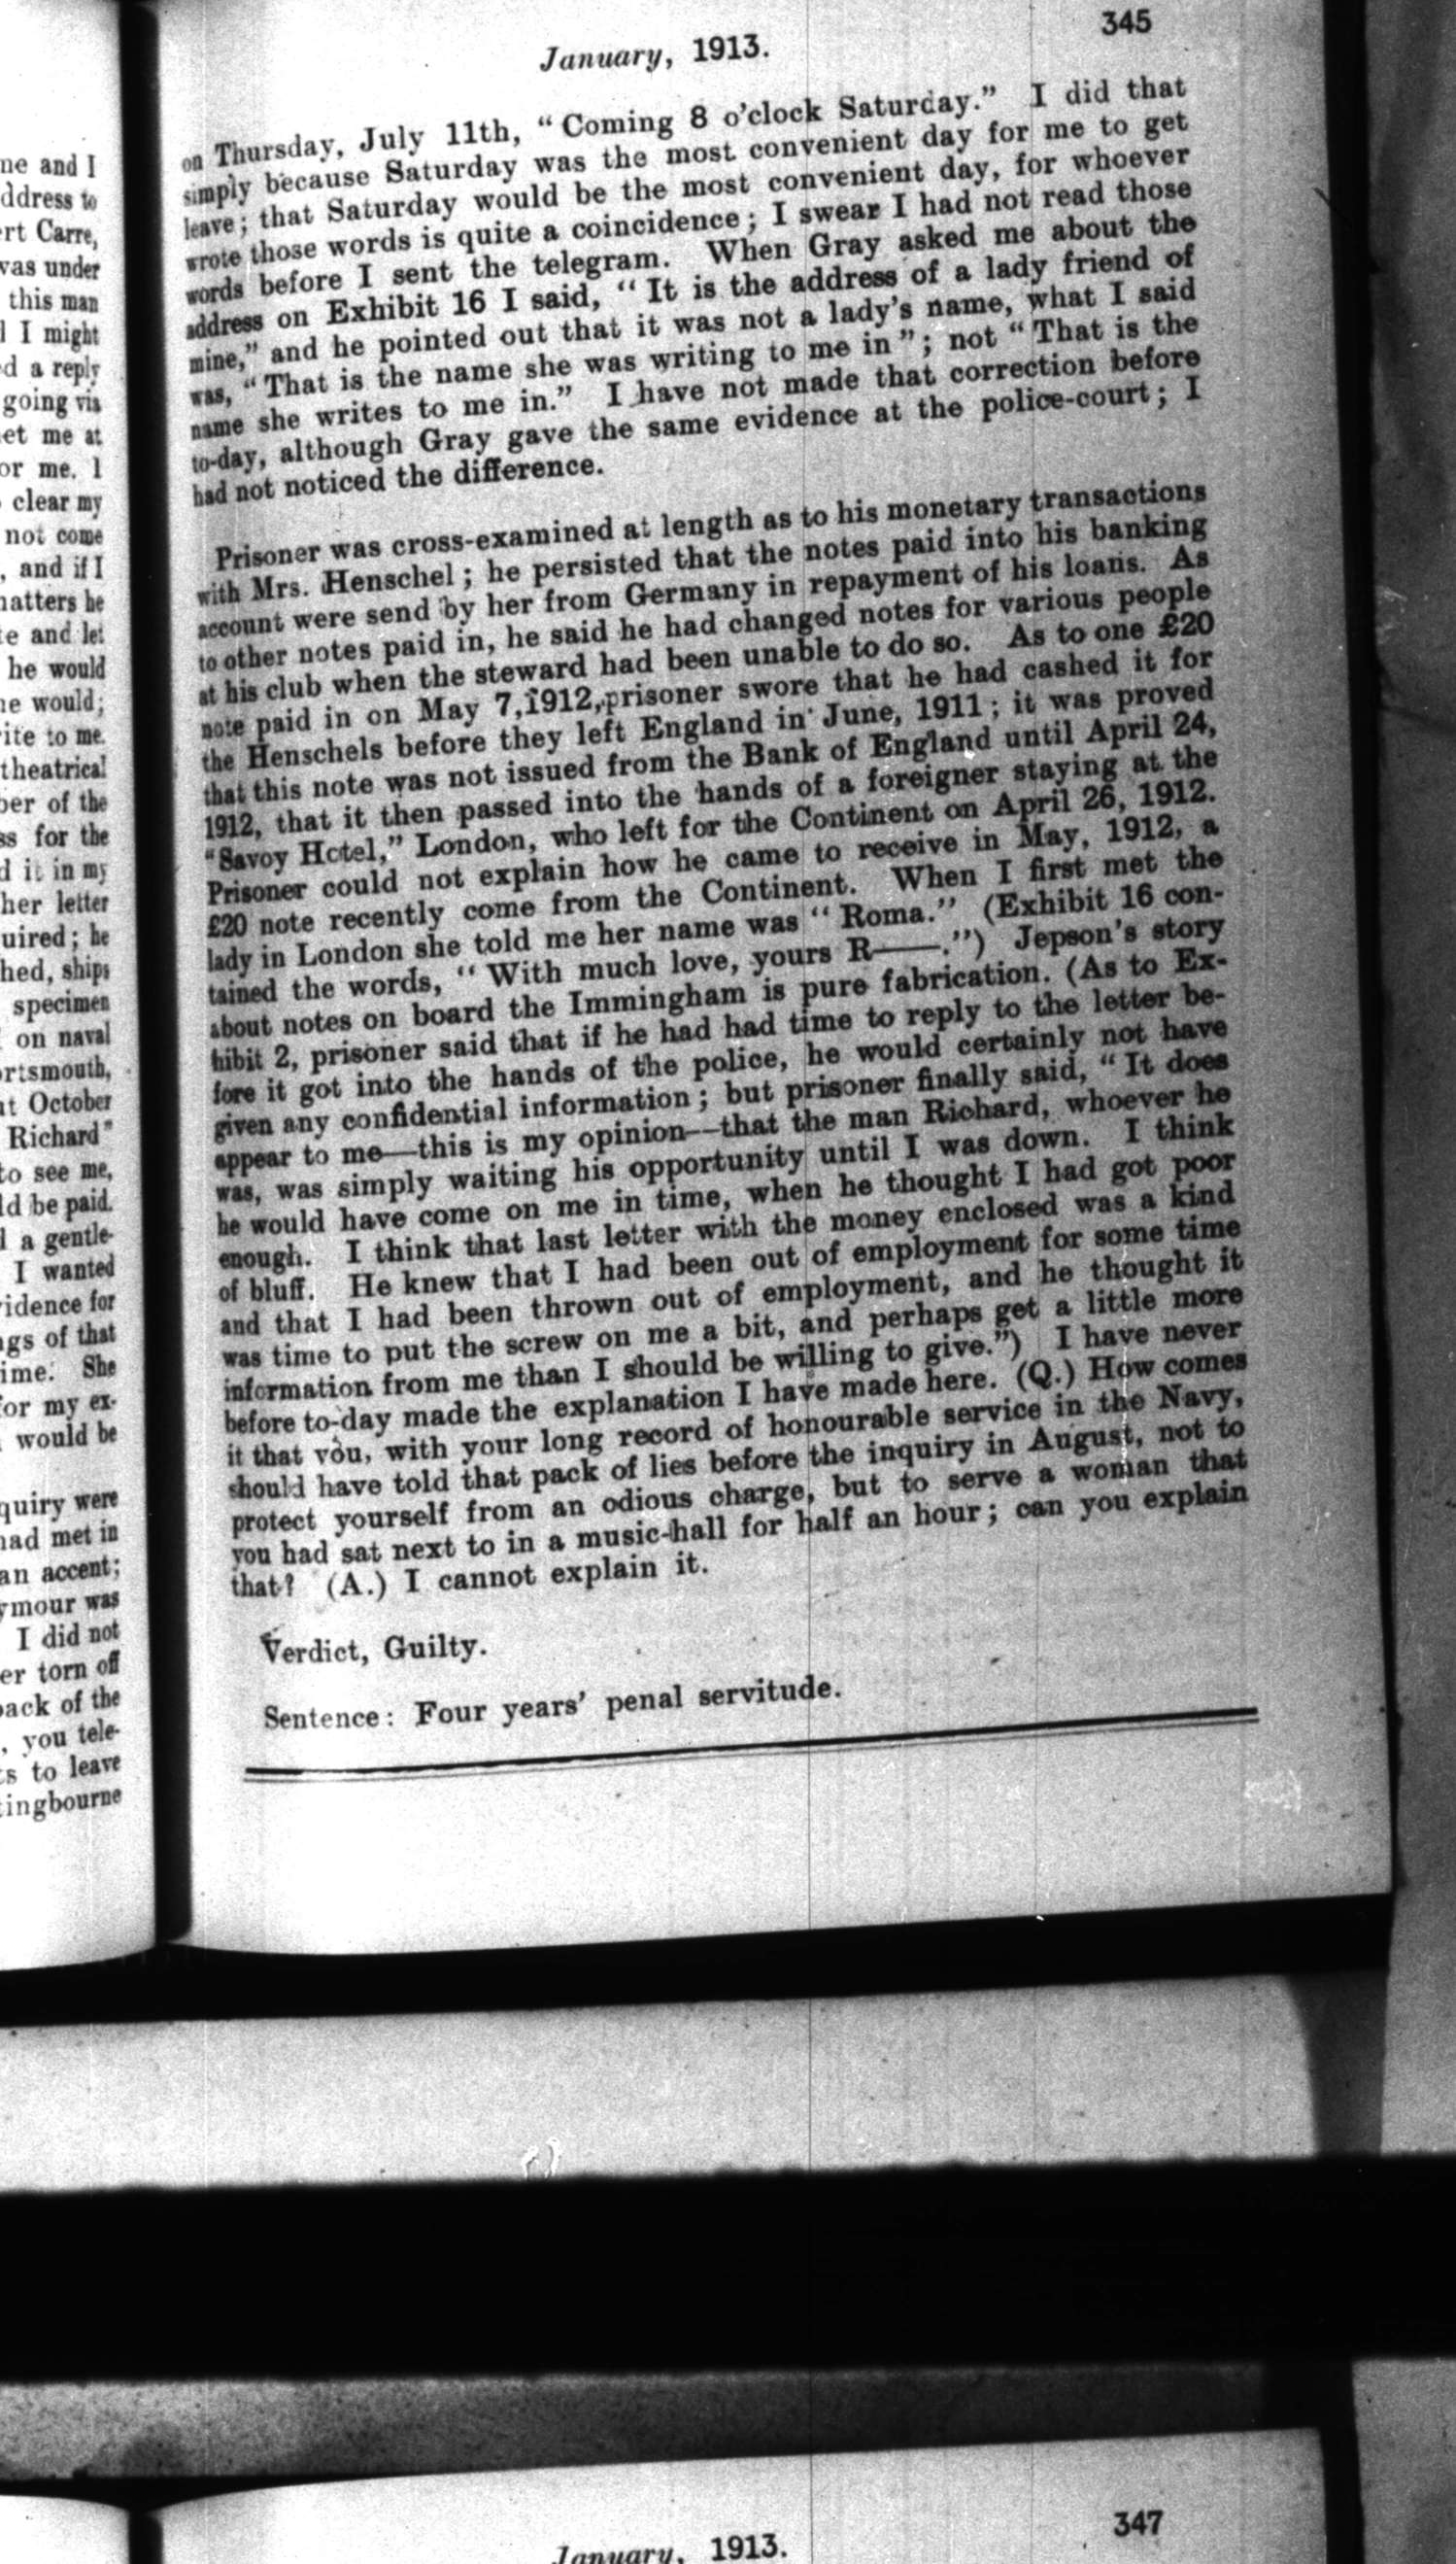 ne and I
ddress to
rt Carre,
was under
this man
I might
d a reply
going via
et me at
or me. I
clear my
not come
, and if I
atters he
e and let
he would
e would;
ite to me.
theatrical
ber of the
ss for the
d it in my
her letter
uired; he
hed, ships
specimen
on naval
ortsmouth,
t October
Richard"
to see me,
ld be paid.
a gentle-
I wanted
idence for
gs of that
ime. She
for my ex-
would be
quiry were
had met in
an accent;
ymour was
I did not
er torn off
back of the
, you tele-
s to leave
tingbourne
January, 1913.
345
on Thursday, July 11th, "Coming 8 o'clock Saturday." I did that
simply because Saturday was the most convenient day for me to get
leave; that Saturday would be the most convenient day, for whoever
wrote those words is quite a coincidence; I swear I had not read those
words before I sent the telegram. When Gray asked me about the
address on Exhibit 16 I said, "It is the address of a lady friend of
mine," and he pointed out that it was not a lady's name, what I said
was, "That is the name she was writing to me in"; not "That is the
name she writes to me in." I have not made that correction before
to-day, although Gray gave the same evidence at the police-court; I
had not noticed the difference.
Prisoner was cross-examined at length as to his monetary transactions
with Mrs. Henschel; he persisted that the notes paid into his banking
account were send by her from Germany in repayment of his loans. As
to other notes paid in, he said he had changed notes for various people
at his club when the steward had been unable to do so. As to one £20
note paid in on May 7, 1912, prisoner swore that he had cashed it for
the Henschels before they left England in June, 1911; it was proved
that this note was not issued from the Bank of England until April 24,
1912, that it then passed into the hands of a foreigner staying at the
"Savoy Hotel," London, who left for the Continent on April 26, 1912.
Prisoner could not explain how he came to receive in May, 1912, a
£20 note recently come from the Continent. When I first met the
lady in London she told me her name was "Roma." (Exhibit 16 con-
tained the words, "With much love, yours R——.") Jepson's story
about notes on board the Immingham is pure fabrication. (As to Ex-
hibit 2, prisoner said that if he had had time to reply to the letter be-
fore it got into the hands of the police, he would certainly not have
given any confidential information; but prisoner finally said, "It does
appear to me—this is my opinion—that the man Richard, whoever he
was, was simply waiting his opportunity until I was down. I think
he would have come on me in time, when he thought I had got poor
enough. I think that last letter with the money enclosed was a kind
of bluff. He knew that I had been out of employment for some time
and that I had been thrown out of employment, and he thought it
was time to put the screw on me a bit, and perhaps get a little more
information from me than I should be willing to give.") I have never
before to-day made the explanation I have made here. (Q.) How comes
it that you, with your long record of honourable service in the Navy,
should have told that pack of lies before the inquiry in August, not to
protect yourself from an odious charge, but to serve a woman that
you had sat next to in a music-hall for half an hour; can you explain
that? (A.) I cannot explain it.
Verdict, Guilty.
Sentence: Four years' penal servitude.
January, 1913.
347